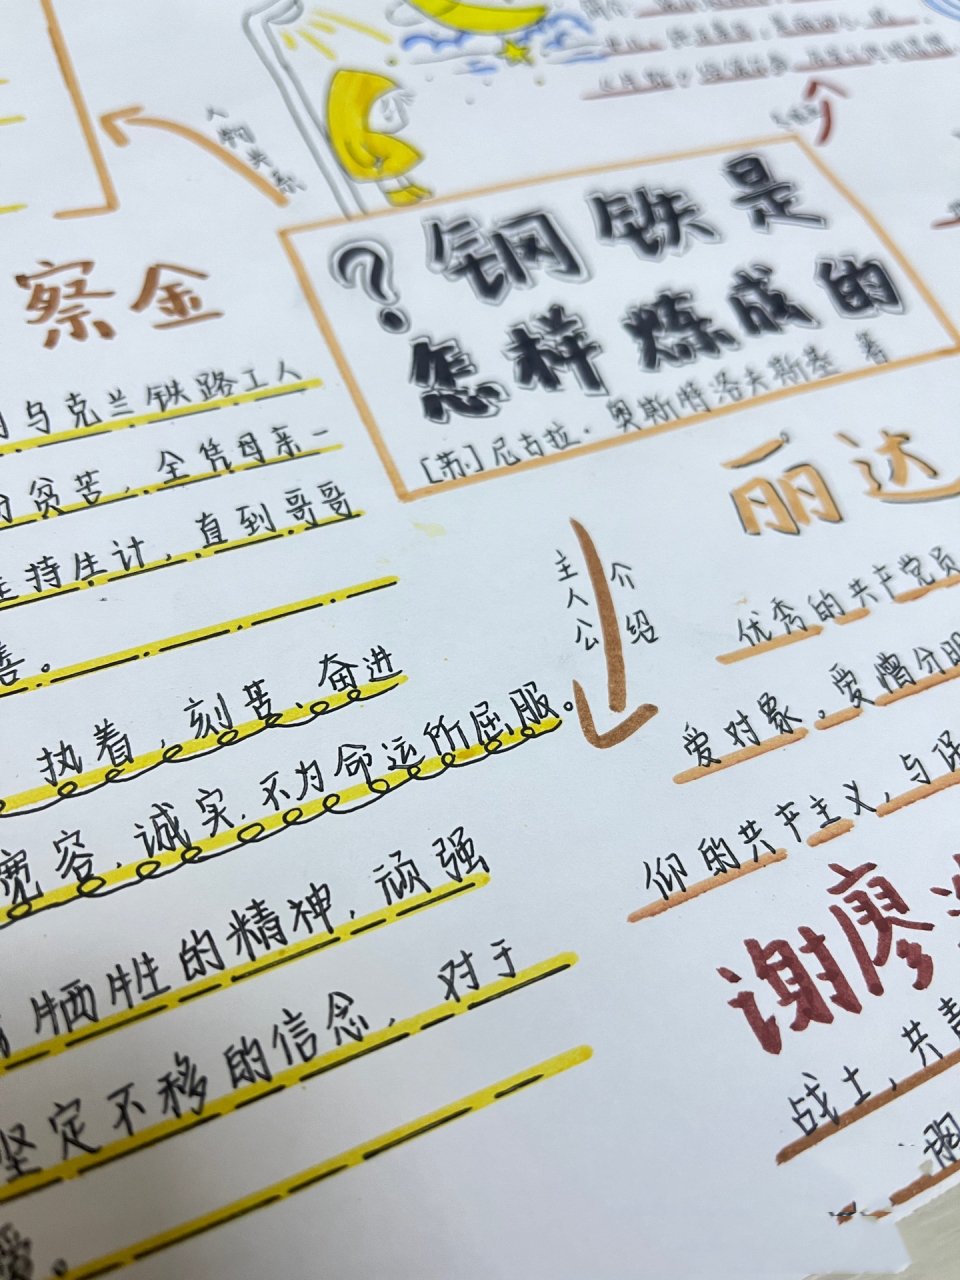 人物关系
?钢铁是
怎样炼成的
[苏]尼古拉·奥斯特洛夫斯基 著
察金
乌克兰铁路工人
贫苦，全凭母亲一
持生计，直到哥哥
善。
执着，刻苦、奋进
宽容，诚实，不为命运所屈服。
牺牲的精神，顽强
坚定不移的信念，对于
爱。
主人公介绍
丽达
优秀的共产党员
爱对象。爱憎分明
仰的共产主义，与保
谢廖
战士，共青